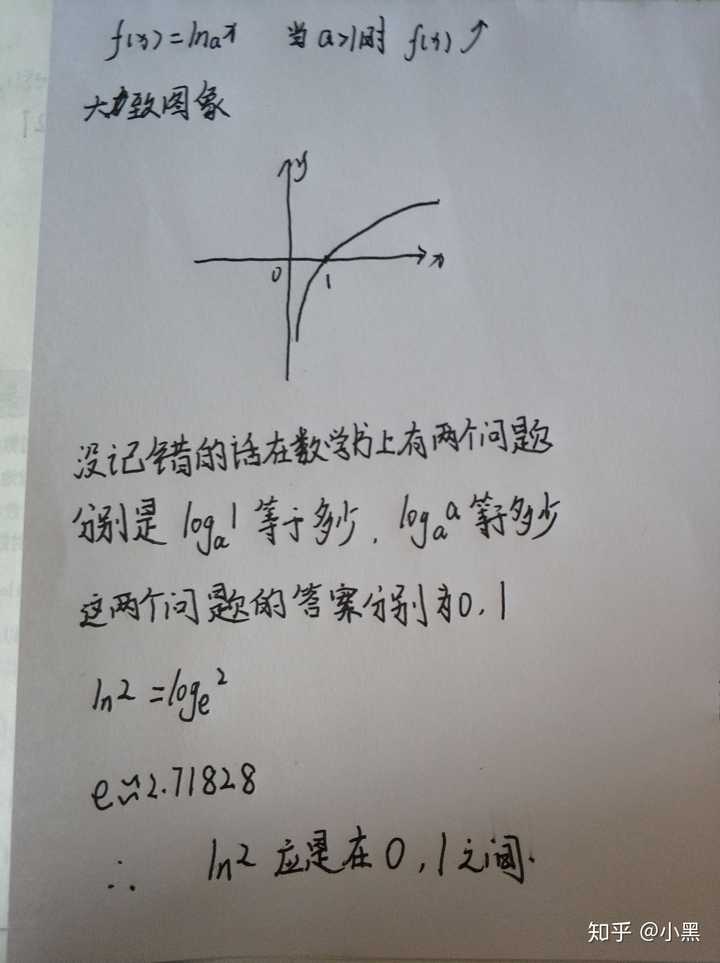 f(x)=lnₐx 当a>1时 f(x)↗
大致图象
y
0 1 x
没记错的话在数学书上有两个问题
分别是 logₐ1 等于多少, logₐa 等于多少
这两个问题的答案分别为0,1
ln2=logₑ2
e≈2.71828
∴ ln2 应是在0,1之间.
知乎 @小黑